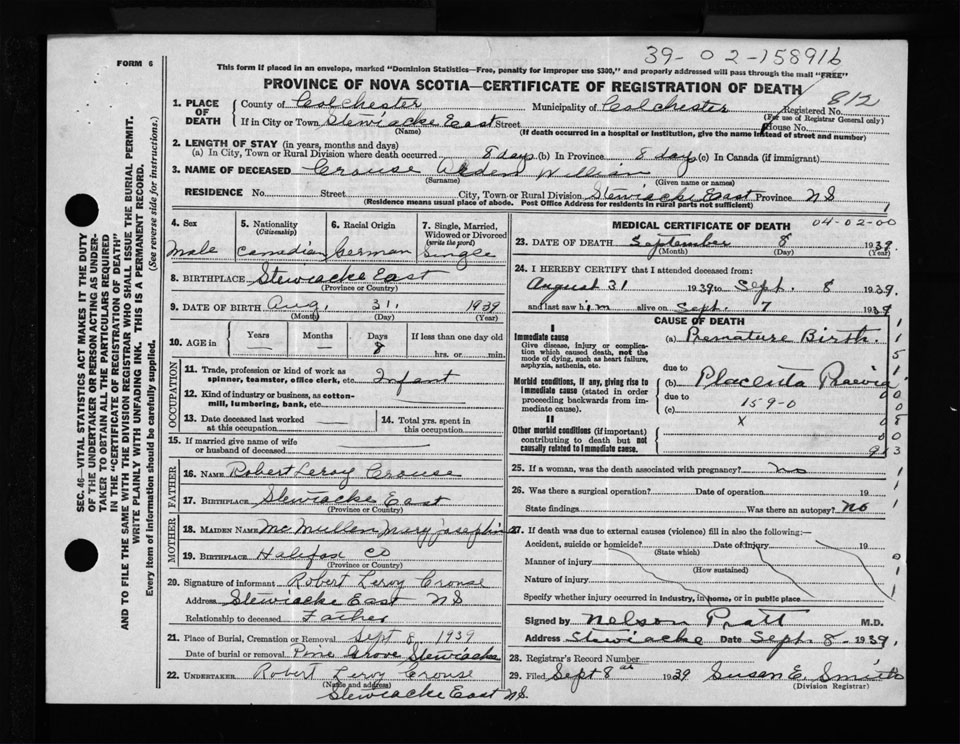 39-02-158916
FORM 6
This form if placed in an envelope, marked "Dominion Statistics—Free, penalty for improper use $300," and properly addressed will pass through the mail "FREE"
PROVINCE OF NOVA SCOTIA—CERTIFICATE OF REGISTRATION OF DEATH
812
1. PLACE OF DEATH County of Colchester Municipality of Colchester Registered No.
(For use of Registrar General only)
If in City or Town Stewiacke East Street House No.
(Name) (If death occurred in a hospital or institution, give the name instead of street and number)
2. LENGTH OF STAY (in years, months and days)
(a) In City, Town or Rural Division where death occurred 8 days (b) In Province 8 days (c) In Canada (if immigrant)
3. NAME OF DECEASED Crouse Alden William
(Surname) (Given name or names)
RESIDENCE No. Street City, Town or Rural Division Stewiacke East Province NS
(Residence means usual place of abode. Post Office Address for residents in rural parts not sufficient)
4. Sex Male
5. Nationality (Citizenship) Canadian
6. Racial Origin German
7. Single, Married, Widowed or Divorced (write the word) Single
8. BIRTHPLACE Stewiacke East
(Province or Country)
9. DATE OF BIRTH Aug. 31, 1939
(Month) (Day) (Year)
10. AGE in Years — Months — Days 8 If less than one day old
hrs. or min.
OCCUPATION
11. Trade, profession or kind of work as spinner, teamster, office clerk, etc. Infant
12. Kind of industry or business, as cotton-mill, lumbering, bank, etc.
13. Date deceased last worked at this occupation
14. Total yrs. spent in this occupation
15. If married give name of wife or husband of deceased
FATHER
16. NAME Robert Leroy Crouse
17. BIRTHPLACE Stewiacke East
(Province or Country)
MOTHER
18. MAIDEN NAME McMullen Mary Josephine
19. BIRTHPLACE Halifax Co
(Province or Country)
20. Signature of informant Robert Leroy Crouse
Address Stewiacke East NS
Relationship to deceased Father
21. Place of Burial, Cremation or Removal Sept 8, 1939
Date of burial or removal Pine Grove Stewiacke
22. UNDERTAKER Robert Leroy Crouse
(Name and address)
Stewiacke East NS
MEDICAL CERTIFICATE OF DEATH 04-02-00
23. DATE OF DEATH September 8 1939.
(Month) (Day) (Year)
24. I HEREBY CERTIFY that I attended deceased from:
August 31 1939 to Sept. 8 1939.
and last saw him alive on Sept. 7 1939
CAUSE OF DEATH
I
Immediate cause
Give disease, injury or complication which caused death, not the mode of dying, such as heart failure, asphyxia, asthenia, etc.
(a) Premature Birth.
due to
Morbid conditions, if any, giving rise to immediate cause (stated in order proceeding backwards from immediate cause).
(b) Placenta Praevia
due to
(c) 159-0
II
Other morbid conditions (if important) contributing to death but not causally related to immediate cause.
x
25. If a woman, was the death associated with pregnancy? no
26. Was there a surgical operation? Date of operation 19
State findings Was there an autopsy? No
27. If death was due to external causes (violence) fill in also the following:—
Accident, suicide or homicide? Date of injury 19
(State which)
Manner of injury
(How sustained)
Nature of injury
Specify whether injury occurred in industry, in home, or in public place
Signed by Nelson Pratt M.D.
Address Stewiacke Date Sept. 8 1939.
28. Registrar's Record Number
29. Filed Sept 8th 1939 Susan E. Smith
(Division Registrar)
SEC. 46—VITAL STATISTICS ACT MAKES IT THE DUTY
OF THE UNDERTAKER OR PERSON ACTING AS UNDER-
TAKER TO OBTAIN ALL THE PARTICULARS REQUIRED
IN THE "CERTIFICATE OF REGISTRATION OF DEATH"
AND TO FILE THE SAME WITH THE DIVISION REGISTRAR WHO SHALL ISSUE THE BURIAL PERMIT.
WRITE PLAINLY WITH UNFADING INK. THIS IS A PERMANENT RECORD.
Every item of information should be carefully supplied. (See reverse side for instructions.)